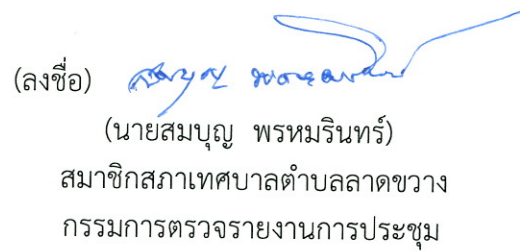 (ลงชื่อ) สมบุญ พรหมรินทร์
(นายสมบุญ พรหมรินทร์)
สมาชิกสภาเทศบาลตำบลลาดขวาง
กรรมการตรวจรายงานการประชุม